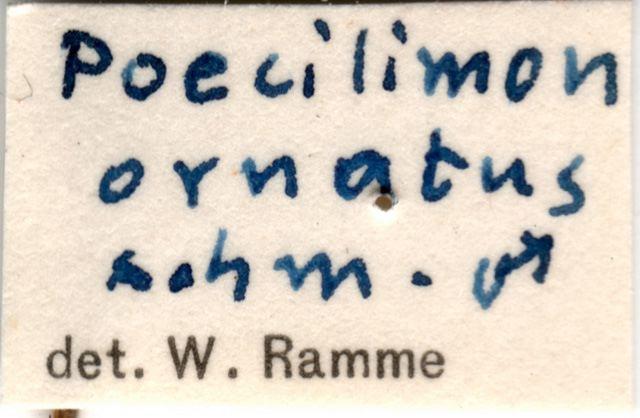 Poecilimon
ornatus
schm. ♂
det. W. Ramme